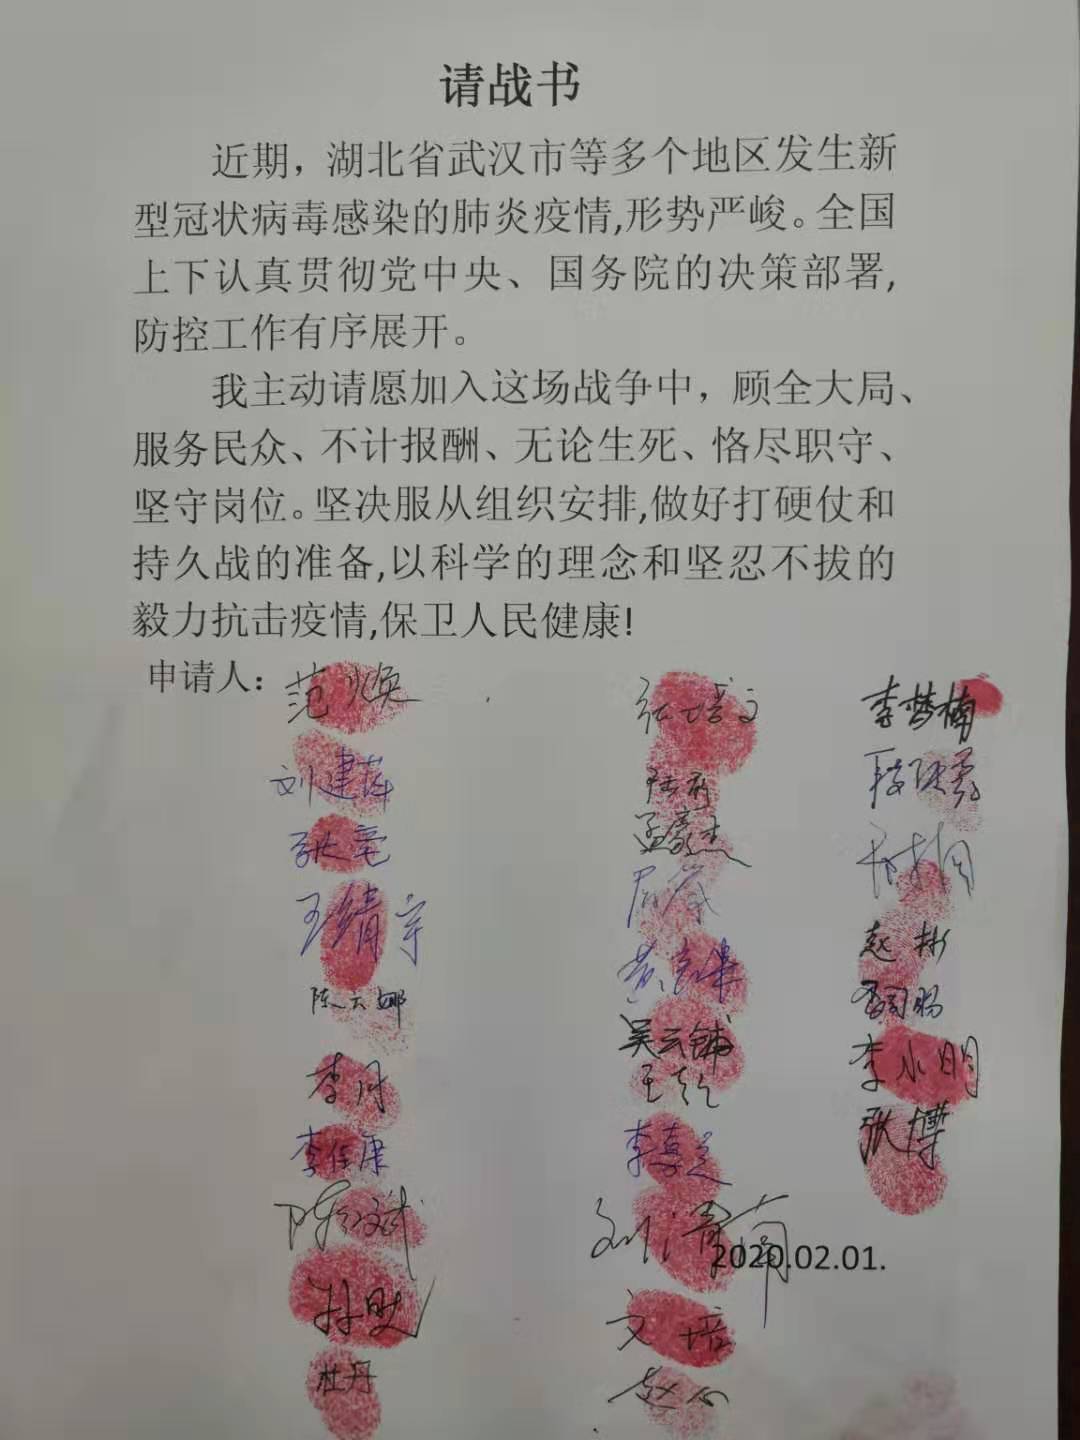 请战书
近期，湖北省武汉市等多个地区发生新
型冠状病毒感染的肺炎疫情,形势严峻。全国
上下认真贯彻党中央、国务院的决策部署,
防控工作有序展开。
我主动请愿加入这场战争中，顾全大局、
服务民众、不计报酬、无论生死、恪尽职守、
坚守岗位。坚决服从组织安排,做好打硬仗和
持久战的准备,以科学的理念和坚忍不拔的
毅力抗击疫情,保卫人民健康!
申请人：范焕 张培文 李梦楠
刘建萍
张亮 孟豪杰
王绪宇
赵彬
陈云娜
吴云铺 李永明
李月
张博
李佳康
陈红斌
2020.02.01.
文培
杜丹